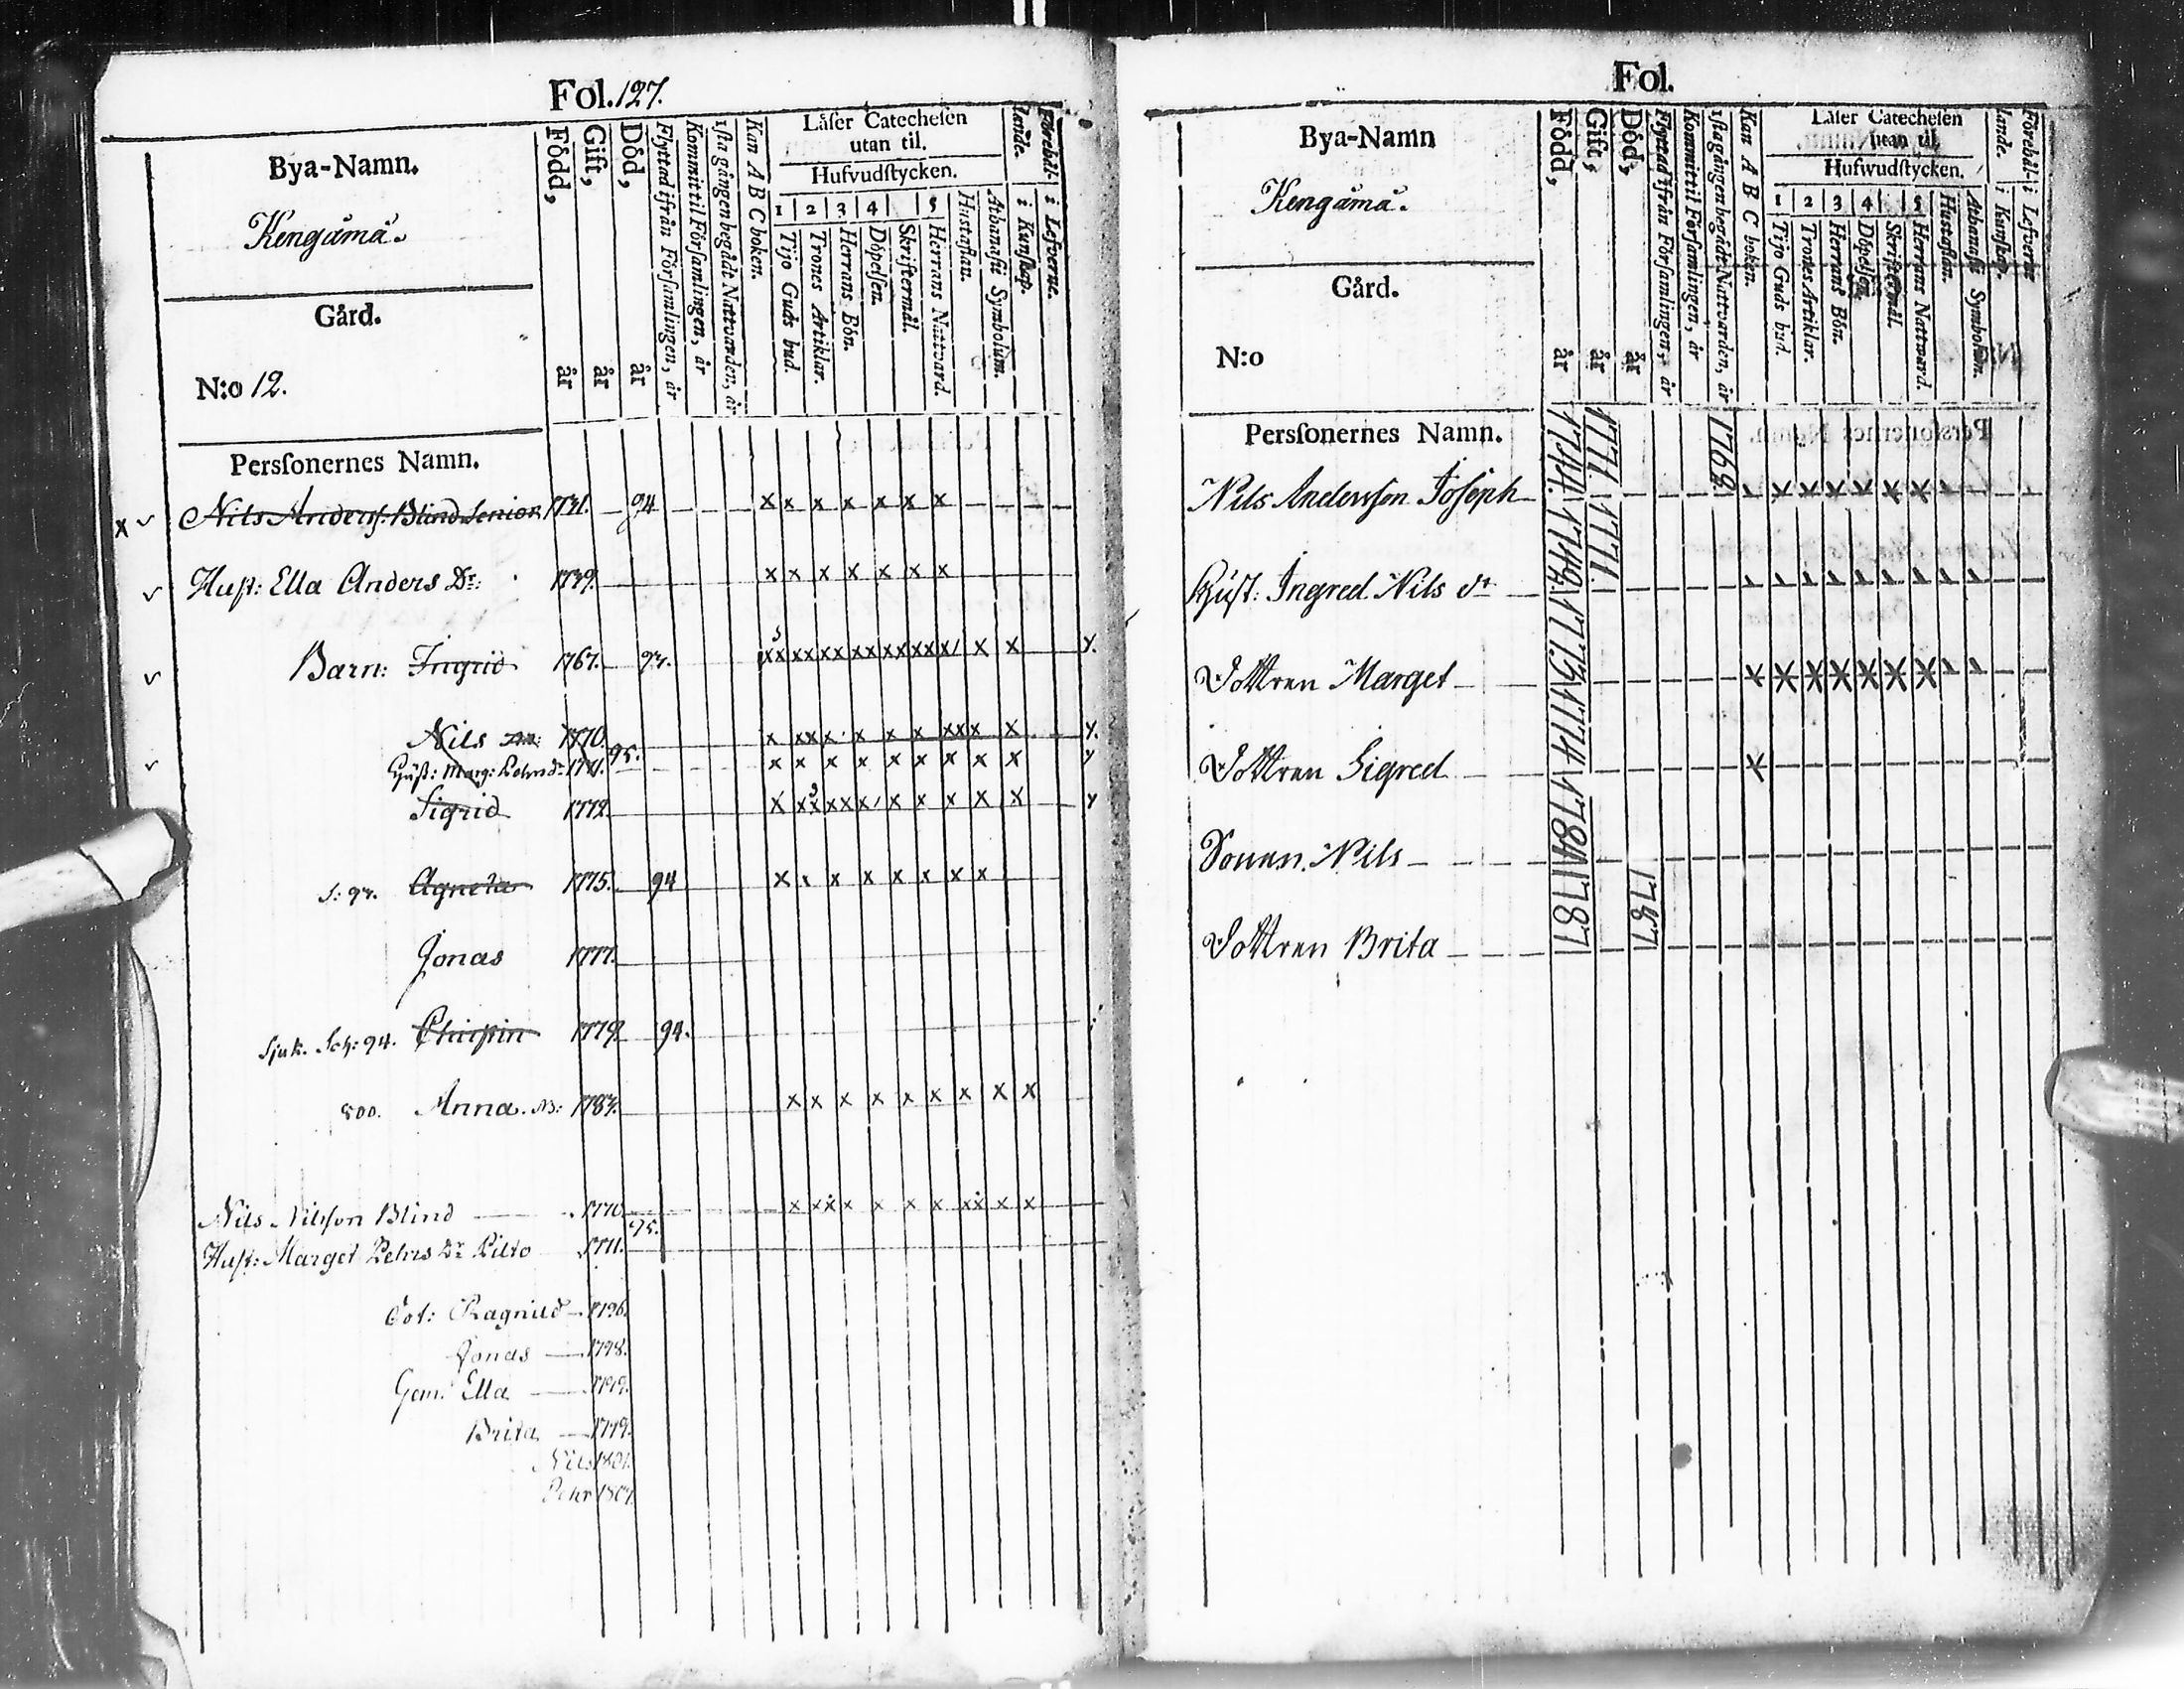 Fol. 127.
Bya-Namn.
Kengämä.
Gård.
N:o 12.
Född, år
Gift, år
Död, år
Flyttad ifrån Församlingen, år
Kommit til Församlingen, år
1sta gången begådt Nattvarden, år
Kan A B C boken.
Låser Catechesen
utan til.
Hufvudstycken.
1 2 3 4 5
Tijo Guds bud.
Trones Artiklar.
Herrans Bön.
Döpelsen.
Skriftermål.
Herrans Nattvard.
Hustaflan.
Athanasii Symbolum.
Förehållande.
i Kunskap.
i Lefverne.
Persſonernes Namn.
x Nils Anderss: Blind Senior 1731. 94 x x x x x x x
Hust: Ella Anders Dr: 1739. x x x x x x x
Barn: Ingrid 1767.
Nils 1770. 95.
Hust: Marg: Pehrs dr 1771. x x x x x x x x x
Sigrid 1772.
Agneta 1775. 94
Jonas 1777.
Sjuk. 94. 1779. 94.
800. Anna. x x x x x x x x x
Nils Nilsson Blind 1770. 95.
Hust: Marget Pehrs Dr Pilto 1771.
Dot: Ragnild 1796.
Jonas 1798.
Gem. Ella 1799.
Brita 1799.
Nils 1801.
Pehr
Fol.
Bya-Namn
Kengämä.
Gård.
N:o
Född, år
Gift, år
Död, år
Flyttad ifrån Församlingen, år
Kommit til Församlingen, år
1sta gången begådt Nattvarden, år
Kan A B C boken.
Låser Catechesen
utan til.
Hufwudstycken.
1 2 3 4 5
Tijo Guds bud.
Trones Artiklar.
Herrans Bön.
Döpelsen.
Skriftermål.
Herrans Nattvard.
Hustaflan.
Athanasii Symbolum.
Förehållande.
i Kunskap.
i Lefverne
Persſonernes Namn.
Nils Andersson Joseph 1744. 1771 1762
Hust: Ingred Nils dr 1749. 1771.
Dottren Marget 1773
Dottren Sigred 1774
Sonen Nils 1784
Dottren Brita 1787 1787